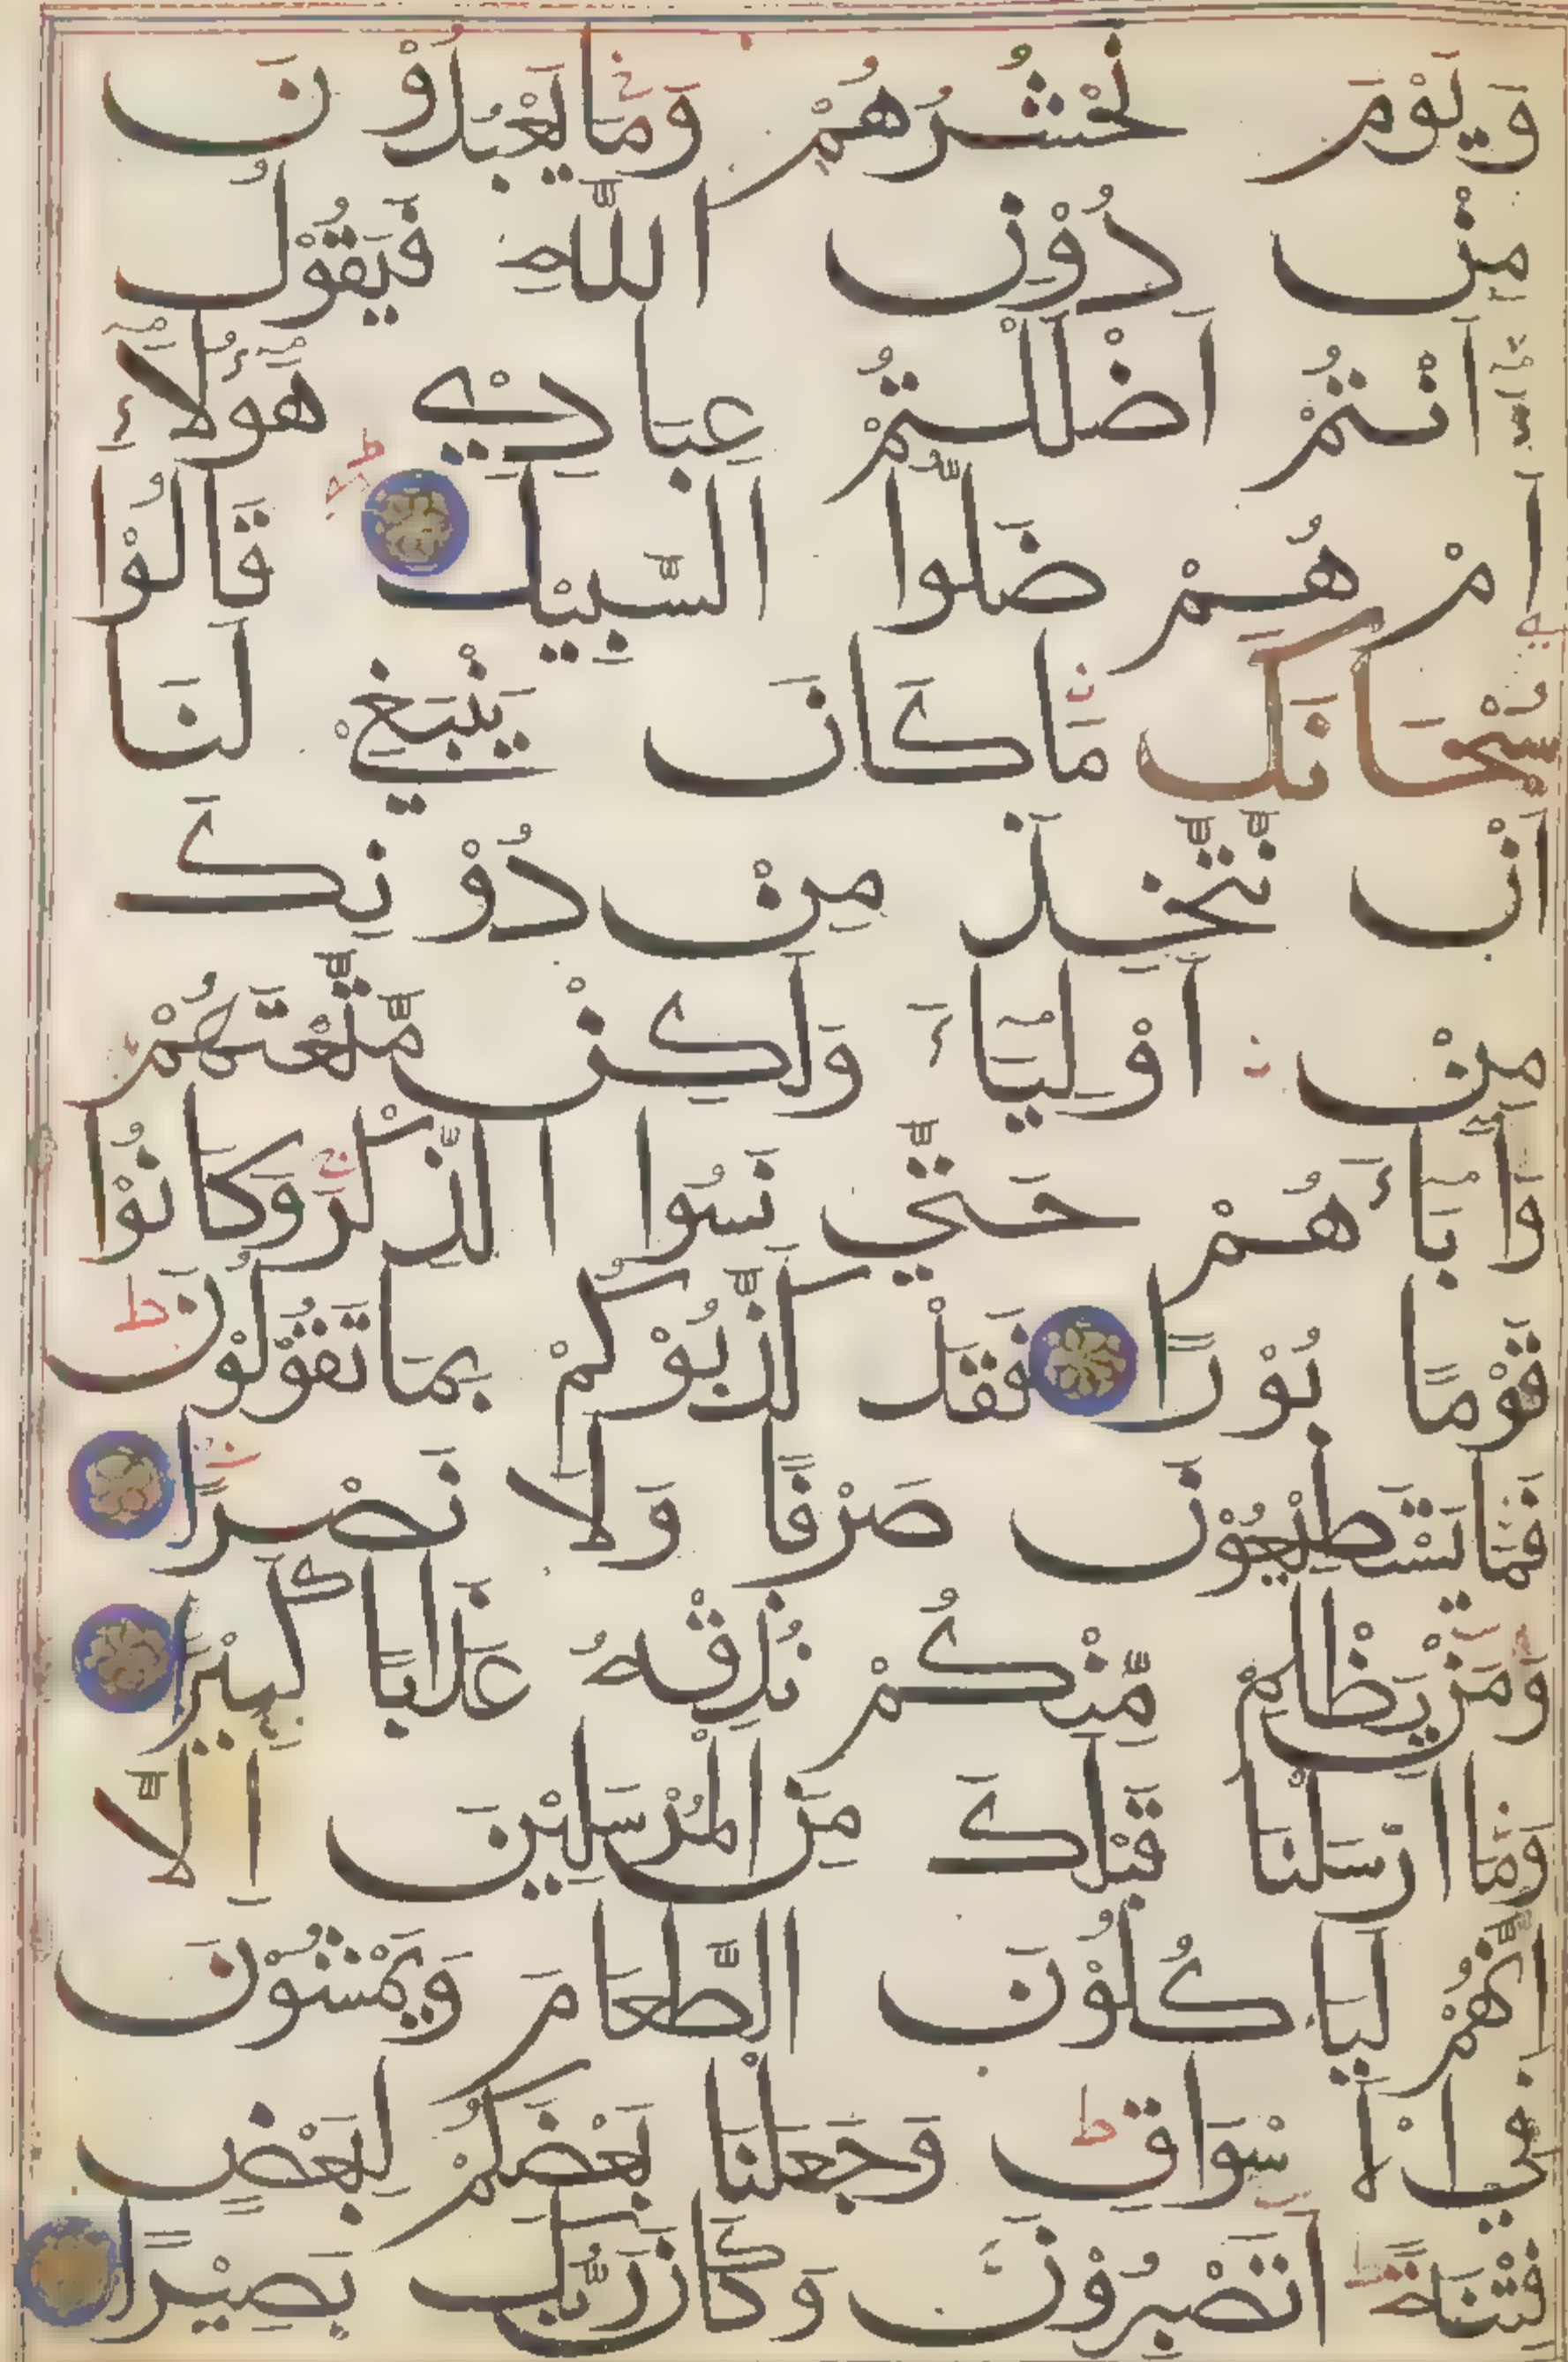 وَيَوْمَ نَحْشُرُهُمْ وَمَا يَعْبُدُوْنَ
مِنْ دُوْنِ اللّٰهِ فَيَقُوْلُ
ءَاَنْتُمْ اَضْلَلْتُمْ عِبَادِيْ هٰٓؤُلَآءِ
اَمْ هُمْ ضَلُّوا السَّبِيْلَ قَالُوْا
سُبْحَانَكَ مَا كَانَ يَنْبَغِيْ لَنَا
اَنْ نَّتَّخِذَ مِنْ دُوْنِكَ
مِنْ اَوْلِيَآءَ وَلَكِنْ مَّتَّعْتَهُمْ
وَاٰبَآءَهُمْ حَتّٰي نَسُوا الذِّكْرَ وَكَانُوْا
قَوْمًا بُوْرًا فَقَدْ كَذَّبُوْكُمْ بِمَا تَقُوْلُوْنَ ط
فَمَا يَسْتَطِيْعُوْنَ صَرْفًا وَلَا نَصْرًا
وَمَنْ يَظْلِمْ مِّنْكُمْ نُذِقْهُ عَذَابًا كَبِيْرًا
وَمَا اَرْسَلْنَا قَبْلَكَ مِنَ الْمُرْسَلِيْنَ اِلَّا
اِنَّهُمْ لَيَاْكُلُوْنَ الطَّعَامَ وَيَمْشُوْنَ
فِي الْاَسْوَاقِ ط وَجَعَلْنَا بَعْضَكُمْ لِبَعْضٍ
فِتْنَةً ط اَتَصْبِرُوْنَ وَكَانَ رَبُّكَ بَصِيْرًا